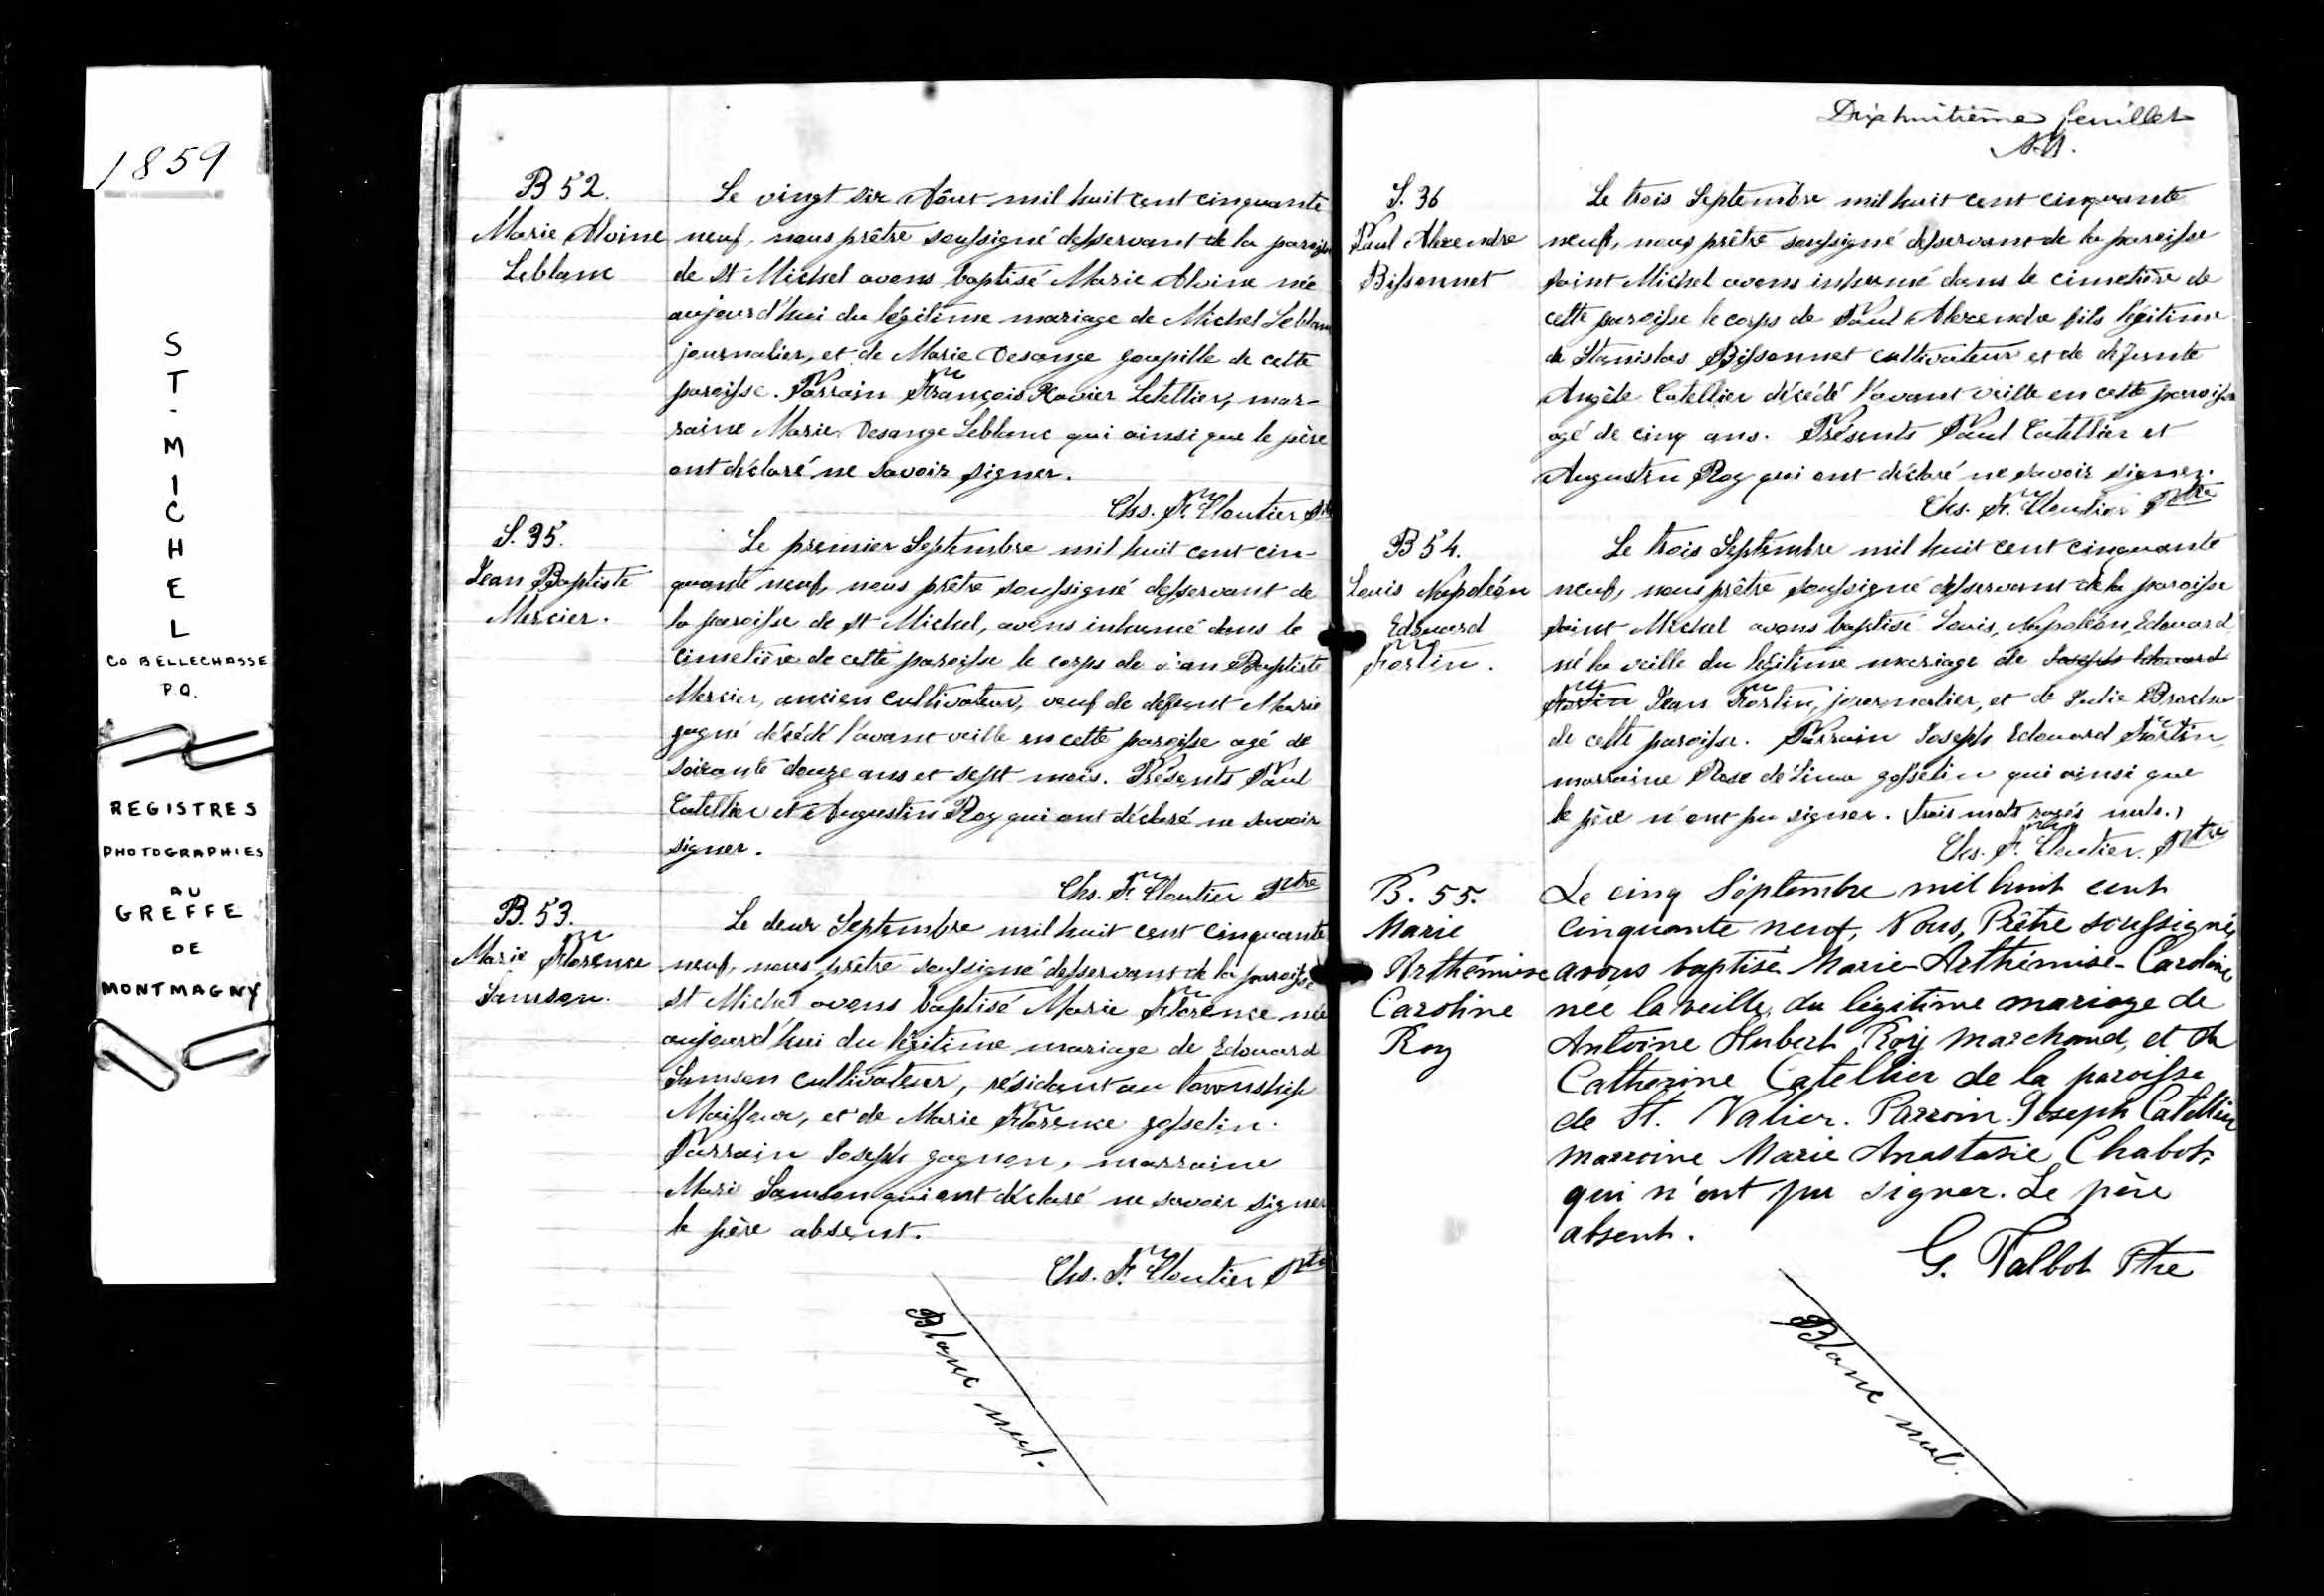 1859
ST-MICHEL
CO BELLECHASSE
P.Q.
REGISTRES
PHOTOGRAPHIES
AU
GREFFE
DE
MONTMAGNY
B 52.
Marie Alvine
Leblanc
Le vingt six Août mil huit cent cinquante
neuf, nous prêtre soussigné desservant de la paroisse
de St Michel avons baptisé Marie Alvine née
aujourd'hui du légitime mariage de Michel Leblanc
journalier, et de Marie Desange goupille de cette
paroisse. Parrain François Xavier Letellier, mar-
raine Marie Desange Leblanc qui ainsi que le père
ont déclaré ne savoir signer.
Chs. F. Cloutier Ptre
S. 35.
Jean Baptiste
Mercier.
Le premier Septembre mil huit cent cin-
quante neuf, nous prêtre soussigné desservant de
la paroisse de St Michel, avons inhumé dans le
cimetière de cette paroisse le corps de Jean Baptiste
Mercier, ancien cultivateur, veuf de defunt Marie
gagné décédé l'avant veille en cette paroisse agé de
soixante douze ans et sept mois. Présents Paul
Catellier et Augustin Roy qui ont déclaré ne savoir
signer.
Chs. F. Cloutier Ptre
B. 53.
Marie Florence
Samson.
Le deux Septembre mil huit cent cinquante
neuf, nous prêtre soussigné desservant de la paroisse
St Michel avons baptisé Marie Florence née
aujourd'hui du légitime mariage de Edouard
Samson cultivateur, résidant au Township
Maiffaux, et de Marie Florence gosselin.
Parrain Joseph gagnon, marraine
Marie Samson qui ont déclaré ne savoir signer
le père absent.
Chs. F. Cloutier Ptre
Blanc nul.
Dixhuitième feuillet
S. 36
Paul Alexendre
Bissonnet
Le trois Septembre mil huit cent cinquante
neuf, nous prêtre soussigné desservant de la paroisse
saint Michel avons inhumé dans le cimetière de
cette paroisse le corps de Paul Alexendre fils légitime
de Stanislas Bissonnet cultivateur et de defunte
Angèle Catellier décédé l'avant veille en cette paroisse
agé de cinq ans. Présents Paul Catellier et
Augustin Roy qui ont déclaré ne savoir signer.
Chs. F. Cloutier Ptre
B 54.
Louis Napoléon
Edouard
Fortin.
Le trois Septembre mil huit cent cinquante
neuf, nous prêtre soussigné desservant de la paroisse
saint Michel avons baptisé Louis, Napoléon, Edouard
né la veille du légitime mariage de Joseph Edouard
Fortin Jean Fortin, journalier, et de Julie Brochu
de cette paroisse. Parrain Joseph Edouard Fortin,
marraine Rose de Lima gosselin qui ainsi que
le père n'ont pu signer. (trois mots rayés nuls.)
Chs. F. Cloutier. Ptre
B. 55.
Marie
Arthémise
Caroline
Roy
Le cinq Septembre mil huit cent
cinquante neuf, Nous, Prêtre soussigné,
avons baptisé Marie-Arthémise-Caroline
née la veille, du légitime mariage de
Antoine Hubert Roy marchand, et de
Catherine Catellier de la paroisse
de St. Valier. Parrain Joseph Catellier
marraine Marie Anastasie Chabot,
qui n'ont pu signer. Le père
absent.
G. Talbot Ptre
Blanc nul.